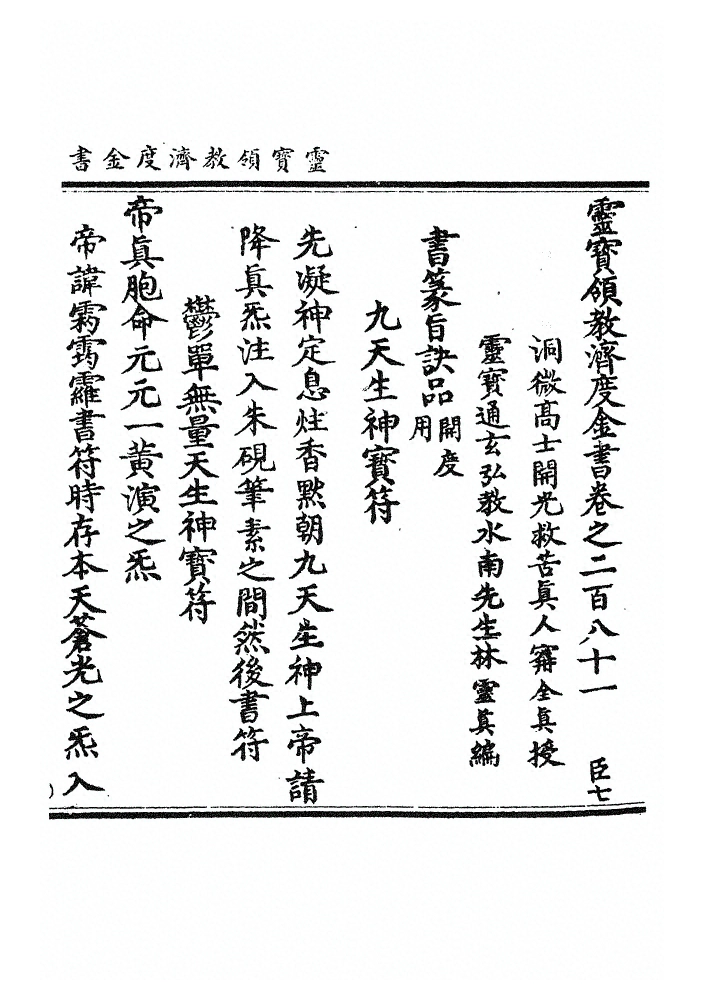 靈寶領教濟度金書
靈寶領教濟度金書卷之二百八十一　臣七
洞微高士開光救苦眞人甯全眞授
靈寶通玄弘教水南先生林靈眞編
書篆旨訣品開度用
九天生神寶符
先凝神定息炷香默朝九天生神上帝請
降眞炁注入朱硯筆素之間然後書符
鬱單無量天生神寶符
帝眞胞命元元一黃演之炁
帝諱霐霿霳書符時存本天蒼光之炁入